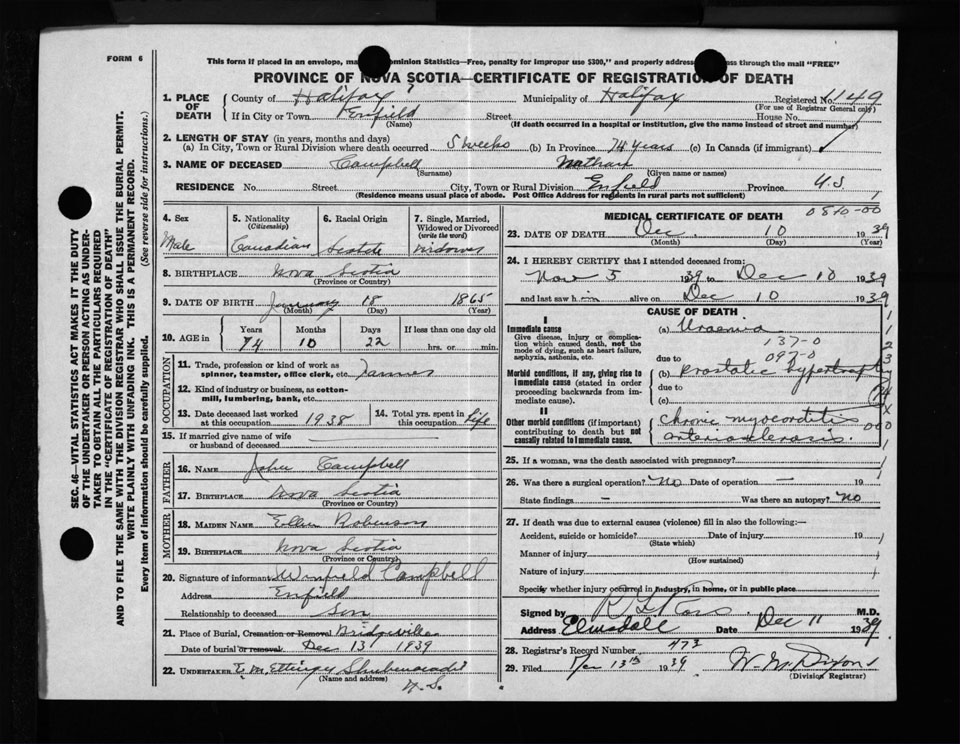 FORM 6
This form if placed in an envelope, ma Dominion Statistics—Free, penalty for improper use $300," and properly address ss through the mail "FREE"
PROVINCE OF NOVA SCOTIA—CERTIFICATE OF REGISTRATION OF DEATH
1. PLACE OF DEATH
County of Halifax ? Municipality of Halifax Registered No. 4149
(For use of Registrar General only)
If in City or Town Enfield Street House No.
(Name) (If death occurred in a hospital or institution, give the name instead of street and number)
2. LENGTH OF STAY (in years, months and days)
(a) In City, Town or Rural Division where death occurred 5 weeks (b) In Province 74 years (c) In Canada (if immigrant)
3. NAME OF DECEASED Campbell Nathan
(Surname) (Given name or names)
RESIDENCE No. Street City, Town or Rural Division Enfield Province N.S.
(Residence means usual place of abode. Post Office Address for residents in rural parts not sufficient)
4. Sex
Male
5. Nationality
(Citizenship)
Canadian
6. Racial Origin
Scotch
7. Single, Married,
Widowed or Divorced
(write the word)
Widower
8. BIRTHPLACE Nova Scotia
(Province or Country)
9. DATE OF BIRTH January 18 1865
(Month) (Day) (Year)
10. AGE in
Years Months Days If less than one day old
74 10 22 hrs. or min.
OCCUPATION
11. Trade, profession or kind of work as
spinner, teamster, office clerk, etc. Farmer
12. Kind of industry or business, as cotton-
mill, lumbering, bank, etc.
13. Date deceased last worked
at this occupation 1938
14. Total yrs. spent in
this occupation Life
15. If married give name of wife
or husband of deceased
FATHER
16. NAME John Campbell
17. BIRTHPLACE Nova Scotia
(Province or Country)
MOTHER
18. MAIDEN NAME Ellen Robinson
19. BIRTHPLACE Nova Scotia
(Province or Country)
20. Signature of informant Winfield Campbell
Address Enfield
Relationship to deceased Son
21. Place of Burial, Cremation or Removal Bridgeville
Date of burial or removal Dec 13 1939
22. UNDERTAKER E. M. Ettinger Shubenacadie
(Name and address)
N.S.
MEDICAL CERTIFICATE OF DEATH
0810-00
23. DATE OF DEATH Dec. 10 1939
(Month) (Day) (Year)
24. I HEREBY CERTIFY that I attended deceased from:
Nov 5 1939 to Dec 10 1939
and last saw him alive on Dec 10 1939
CAUSE OF DEATH
I
Immediate cause
Give disease, injury or complica-
tion which caused death, not the
mode of dying, such as heart failure,
asphyxia, asthenia, etc.
(a) Uraemia
137-0
due to 097-0
Morbid conditions, if any, giving rise to
immediate cause (stated in order
proceeding backwards from im-
mediate cause).
(b) Prostatic hypertrophy
due to
(c)
II
Other morbid conditions (if important)
contributing to death but not
causally related to immediate cause.
Chronic myocarditis
arteriosclerosis.
25. If a woman, was the death associated with pregnancy?
26. Was there a surgical operation? No Date of operation — 19
State findings — Was there an autopsy? No
27. If death was due to external causes (violence) fill in also the following:—
Accident, suicide or homicide? Date of injury 19
(State which)
Manner of injury
(How sustained)
Nature of injury
Specify whether injury occurred in industry, in home, or in public place
Signed by M.D.
Address Elmsdale Date Dec 11 1939
28. Registrar's Record Number 473
29. Filed Dec 13th 1939 W. M. Dixon
(Division Registrar)
SEC. 46—VITAL STATISTICS ACT MAKES IT THE DUTY
OF THE UNDERTAKER OR PERSON ACTING AS UNDER-
TAKER TO OBTAIN ALL THE PARTICULARS REQUIRED
IN THE "CERTIFICATE OF REGISTRATION OF DEATH"
AND TO FILE THE SAME WITH THE DIVISION REGISTRAR WHO SHALL ISSUE THE BURIAL PERMIT.
WRITE PLAINLY WITH UNFADING INK. THIS IS A PERMANENT RECORD.
Every item of information should be carefully supplied. (See reverse side for instructions.)